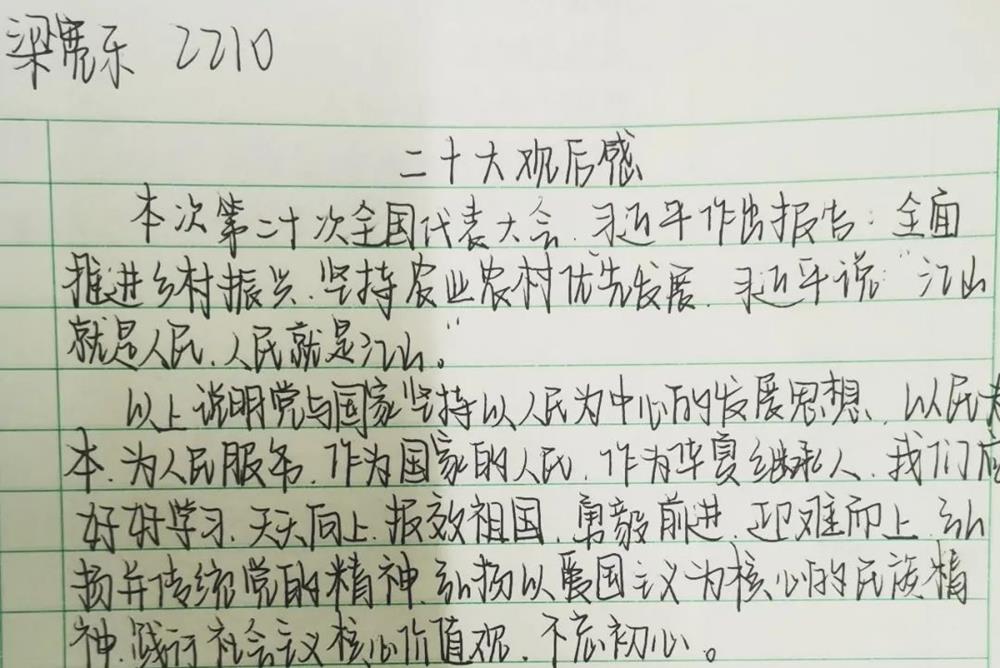 梁宽乐 2210
二十大观后感
本次第二十次全国代表大会,习近平作出报告:全面
推进乡村振兴,坚持农业农村优先发展,习近平说"江山
就是人民,人民就是江山。"
以上说明党与国家坚持以人民为中心的发展思想、以民为
本,为人民服务,作为国家的人民,作为华夏继承人,我们应
好好学习,天天向上,报效祖国,勇毅前进,迎难而上,弘
扬并传统党的精神,弘扬以爱国主义为核心的民族精
神,践行社会主义核心价值观,不忘初心。